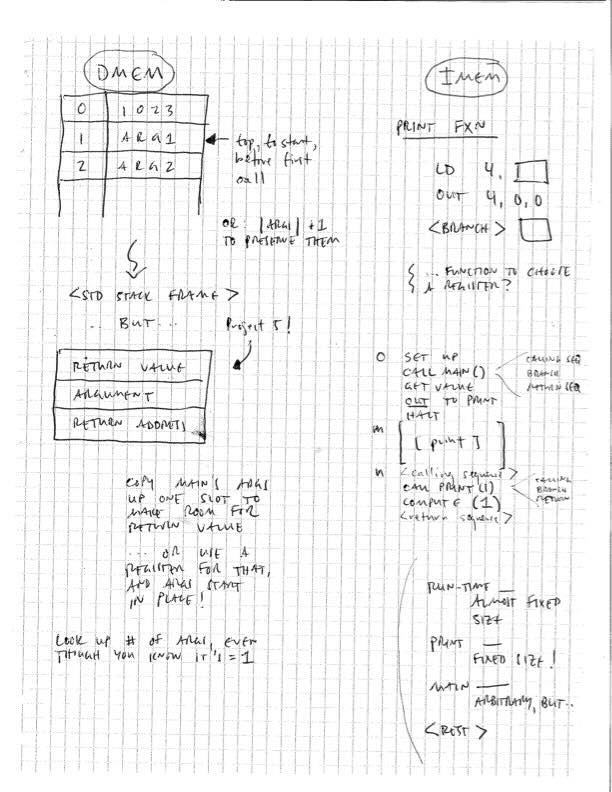 DMEM
0 1023
1 ARG1
2 ARG2
← top, to start,
before first
call
OR: |ARGS| +1
TO PRESERVE THEM
<STD STACK FRAME>
.. BUT...
Project 5!
RETURN VALUE
ARGUMENT
RETURN ADDRESS
COPY MAIN'S ARGS
UP ONE SLOT TO
MAKE ROOM FOR
RETURN VALUE
... OR USE A
REGISTER FOR THAT,
AND ARGS START
IN PLACE!
LOOK UP # OF ARGS, EVEN
THOUGH YOU KNOW IT'S = 1
IMEM
PRINT FXN
LD 4,
OUT 4, 0, 0
<BRANCH>
... FUNCTION TO CHOOSE
A REGISTER?
0 SET UP
CALL MAIN()
GET VALUE
OUT TO PRINT
HALT
CALLING SEQ
BRANCH
RETURN SEQ
m
[print]
n <calling sequence>
CALL PRINT(1)
COMPUTE (1)
<return sequence>
CALLING
BRANCH
RETURN
RUN-TIME
ALMOST FIXED
SIZE
PRINT
FIXED SIZE!
MAIN
ARBITRARY, BUT..
<REST>